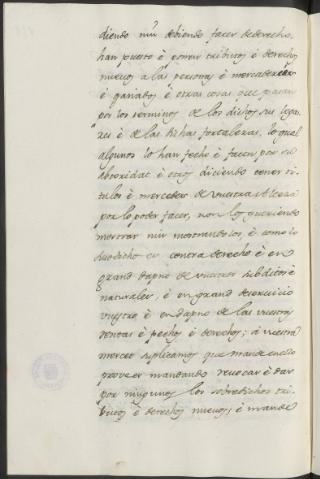 diendo nin debiendo facer de derecho,
han puesto é ponen tributos é derechos
nuevos á las personas é mercaderias
é ganados é otras cosas que pasan
por los terminos de los dichos sus luga-
res é de las dichas fortalezas, lo qual
algunos lo han fecho é facen por su
abtoridat é otros diciendo tener ti-
tulos é mercedes de vuestra Alteza
para lo poder facer, non los queriendo
mostrar nin mostrandolos, é como lo
susodicho es contra derecho é en
grand dapno de vuestros subditos é
naturales, é en grand deservicio
vuestro é en dapno de las vuestras
rentas é pechos é derechos; á vuestra
merced suplicamos que mande en ello
proveer mandando revocar é dar
por ningunos los sobredichos tri-
butos é derechos nuevos, é mande